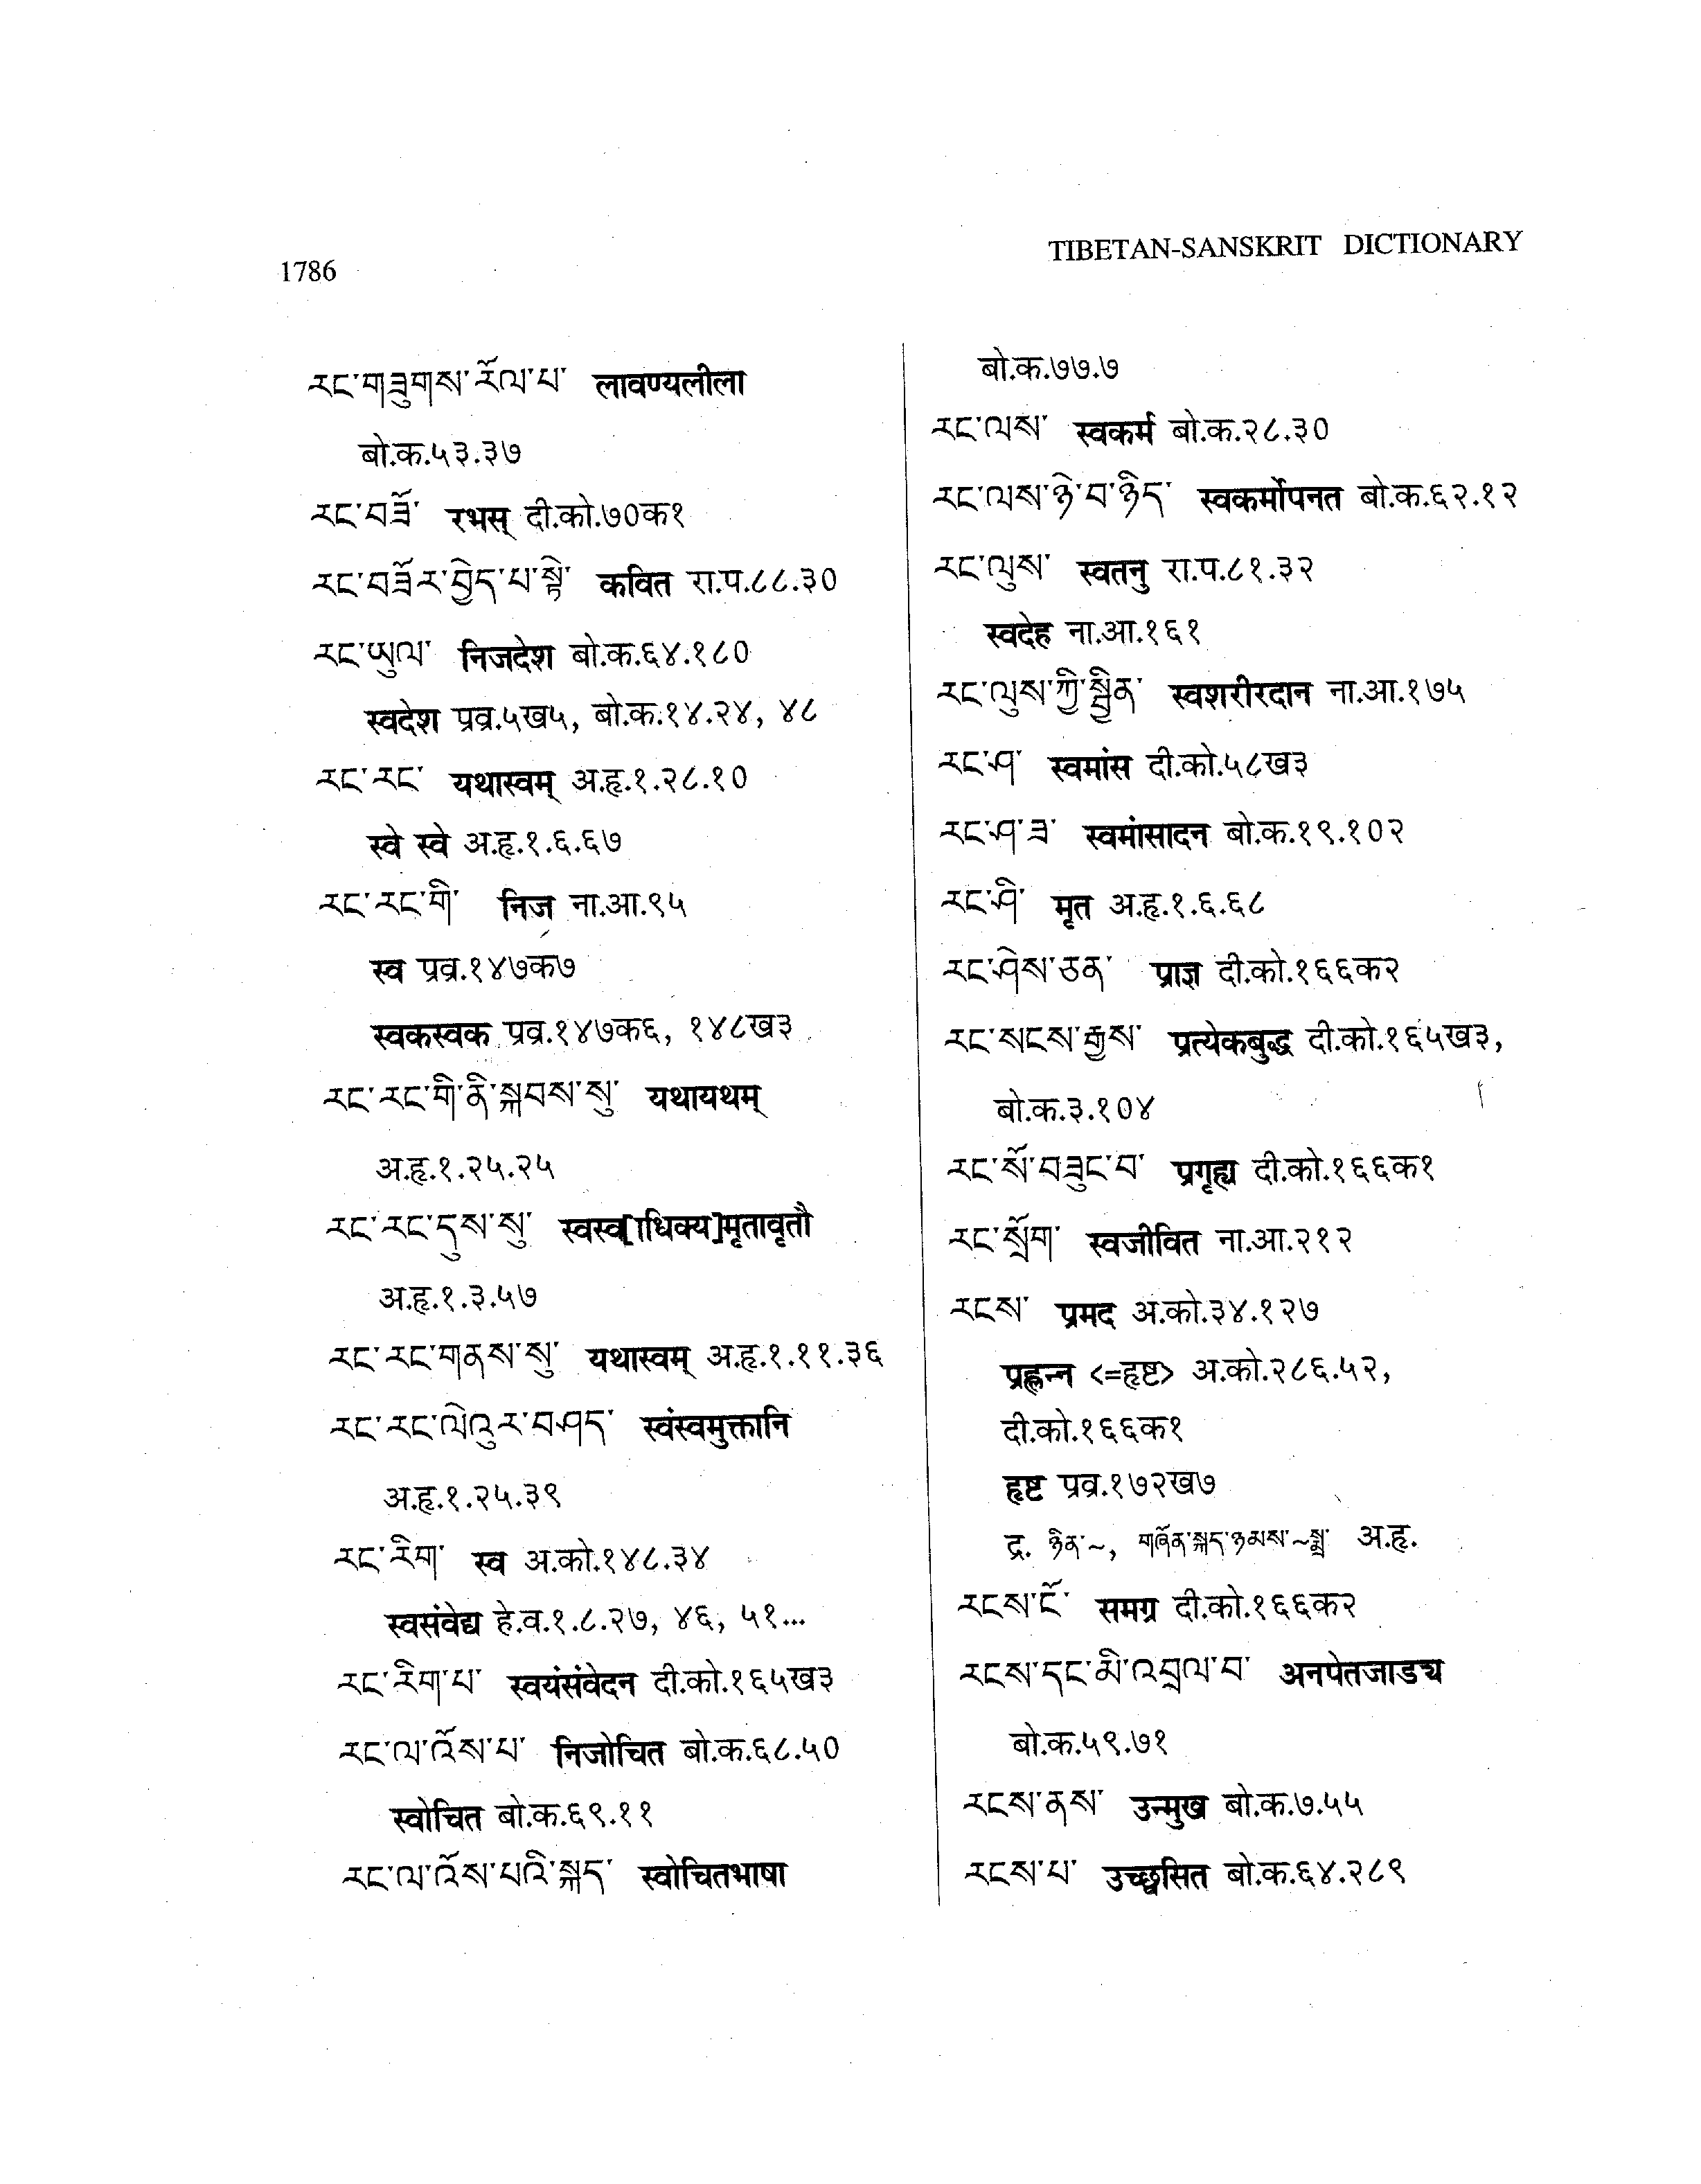 1786
TIBETAN-SANSKRIT DICTIONARY
རང་གཟུགས་རོལ་པ་ लावण्यलीला
बो.क.५३.३७
རང་བཟོ་ रभस् दी.को.७०क१
རང་བཟོར་བྱེད་པ་སྟེ་ कवित रा.प.८८.३०
རང་ཡུལ་ निजदेश बो.क.६४.१८०
स्वदेश प्रव्र.५ख५, बो.क.१४.२४, ४८
རང་རང་ यथास्वम् अ.हृ.१.२८.१०
स्वे स्वे अ.हृ.१.६.६७
རང་རང་གི་ निज ना.आ.९५
स्व प्रव्र.१४७क७
स्वकस्वक प्रव्र.१४७क६, १४८ख३
རང་རང་གི་ནི་སྐབས་སུ་ यथायथम्
अ.हृ.१.२५.२५
རང་རང་དུས་སུ་ स्वस्व[ाधिक्य]मृतावृतौ
अ.हृ.१.३.५७
རང་རང་གནས་སུ་ यथास्वम् अ.हृ.१.११.३६
རང་རང་ལེའུར་བཤད་ स्वंस्वमुक्तानि
अ.हृ.१.२५.३९
རང་རིག་ स्व अ.को.१४८.३४
स्वसंवेद्य हे.व.१.८.२७, ४६, ५१...
རང་རིག་པ་ स्वयंसंवेदन दी.को.१६५ख३
རང་ལ་འོས་པ་ निजोचित बो.क.६८.५०
स्वोचित बो.क.६९.११
རང་ལ་འོས་པའི་སྐད་ स्वोचितभाषा
बो.क.७७.७
རང་ལས་ स्वकर्म बो.क.२८.३०
རང་ལས་ཉེ་བ་ཉིད་ स्वकर्मोपनत बो.क.६२.१२
རང་ལུས་ स्वतनु रा.प.८१.३२
स्वदेह ना.आ.१६१
རང་ལུས་ཀྱི་སྦྱིན་ स्वशरीरदान ना.आ.१७५
རང་ཤ་ स्वमांस दी.को.५८ख३
རང་ཤ་ཟ་ स्वमांसादन बो.क.१९.१०२
རང་ཤི་ मृत अ.हृ.१.६.६८
རང་ཤེས་ཅན་ प्राज्ञ दी.को.१६६क२
རང་སངས་རྒྱས་ प्रत्येकबुद्ध दी.को.१६५ख३,
बो.क.३.१०४
རང་སོ་བཟུང་བ་ प्रगृह्य दी.को.१६६क१
རང་སྲོག་ स्वजीवित ना.आ.२१२
རངས་ प्रमद अ.को.३४.१२७
प्रह्लन्न <=हृष्ट> अ.को.२८६.५२,
दी.को.१६६क१
हृष्ट प्रव्र.१७२ख७
द्र. ཉིན་~, གཞོན་སྐད་ཉམས་~སྨྲ་ अ.हृ.
རངས་ངོ་ समग्र दी.को.१६६क२
རངས་དང་མི་འབྲལ་བ་ अनपेतजाड्य
बो.क.५९.७१
རངས་ནས་ उन्मुख बो.क.७.५५
རངས་པ་ उच्छ्वसित बो.क.६४.२८९